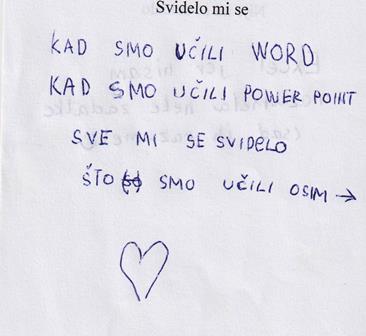 Svidelo mi se
KAD SMO UČILI WORD
KAD SMO UČILI POWER POINT
SVE MI SE SVIDELO
ŠTO SMO UČILI OSIM →